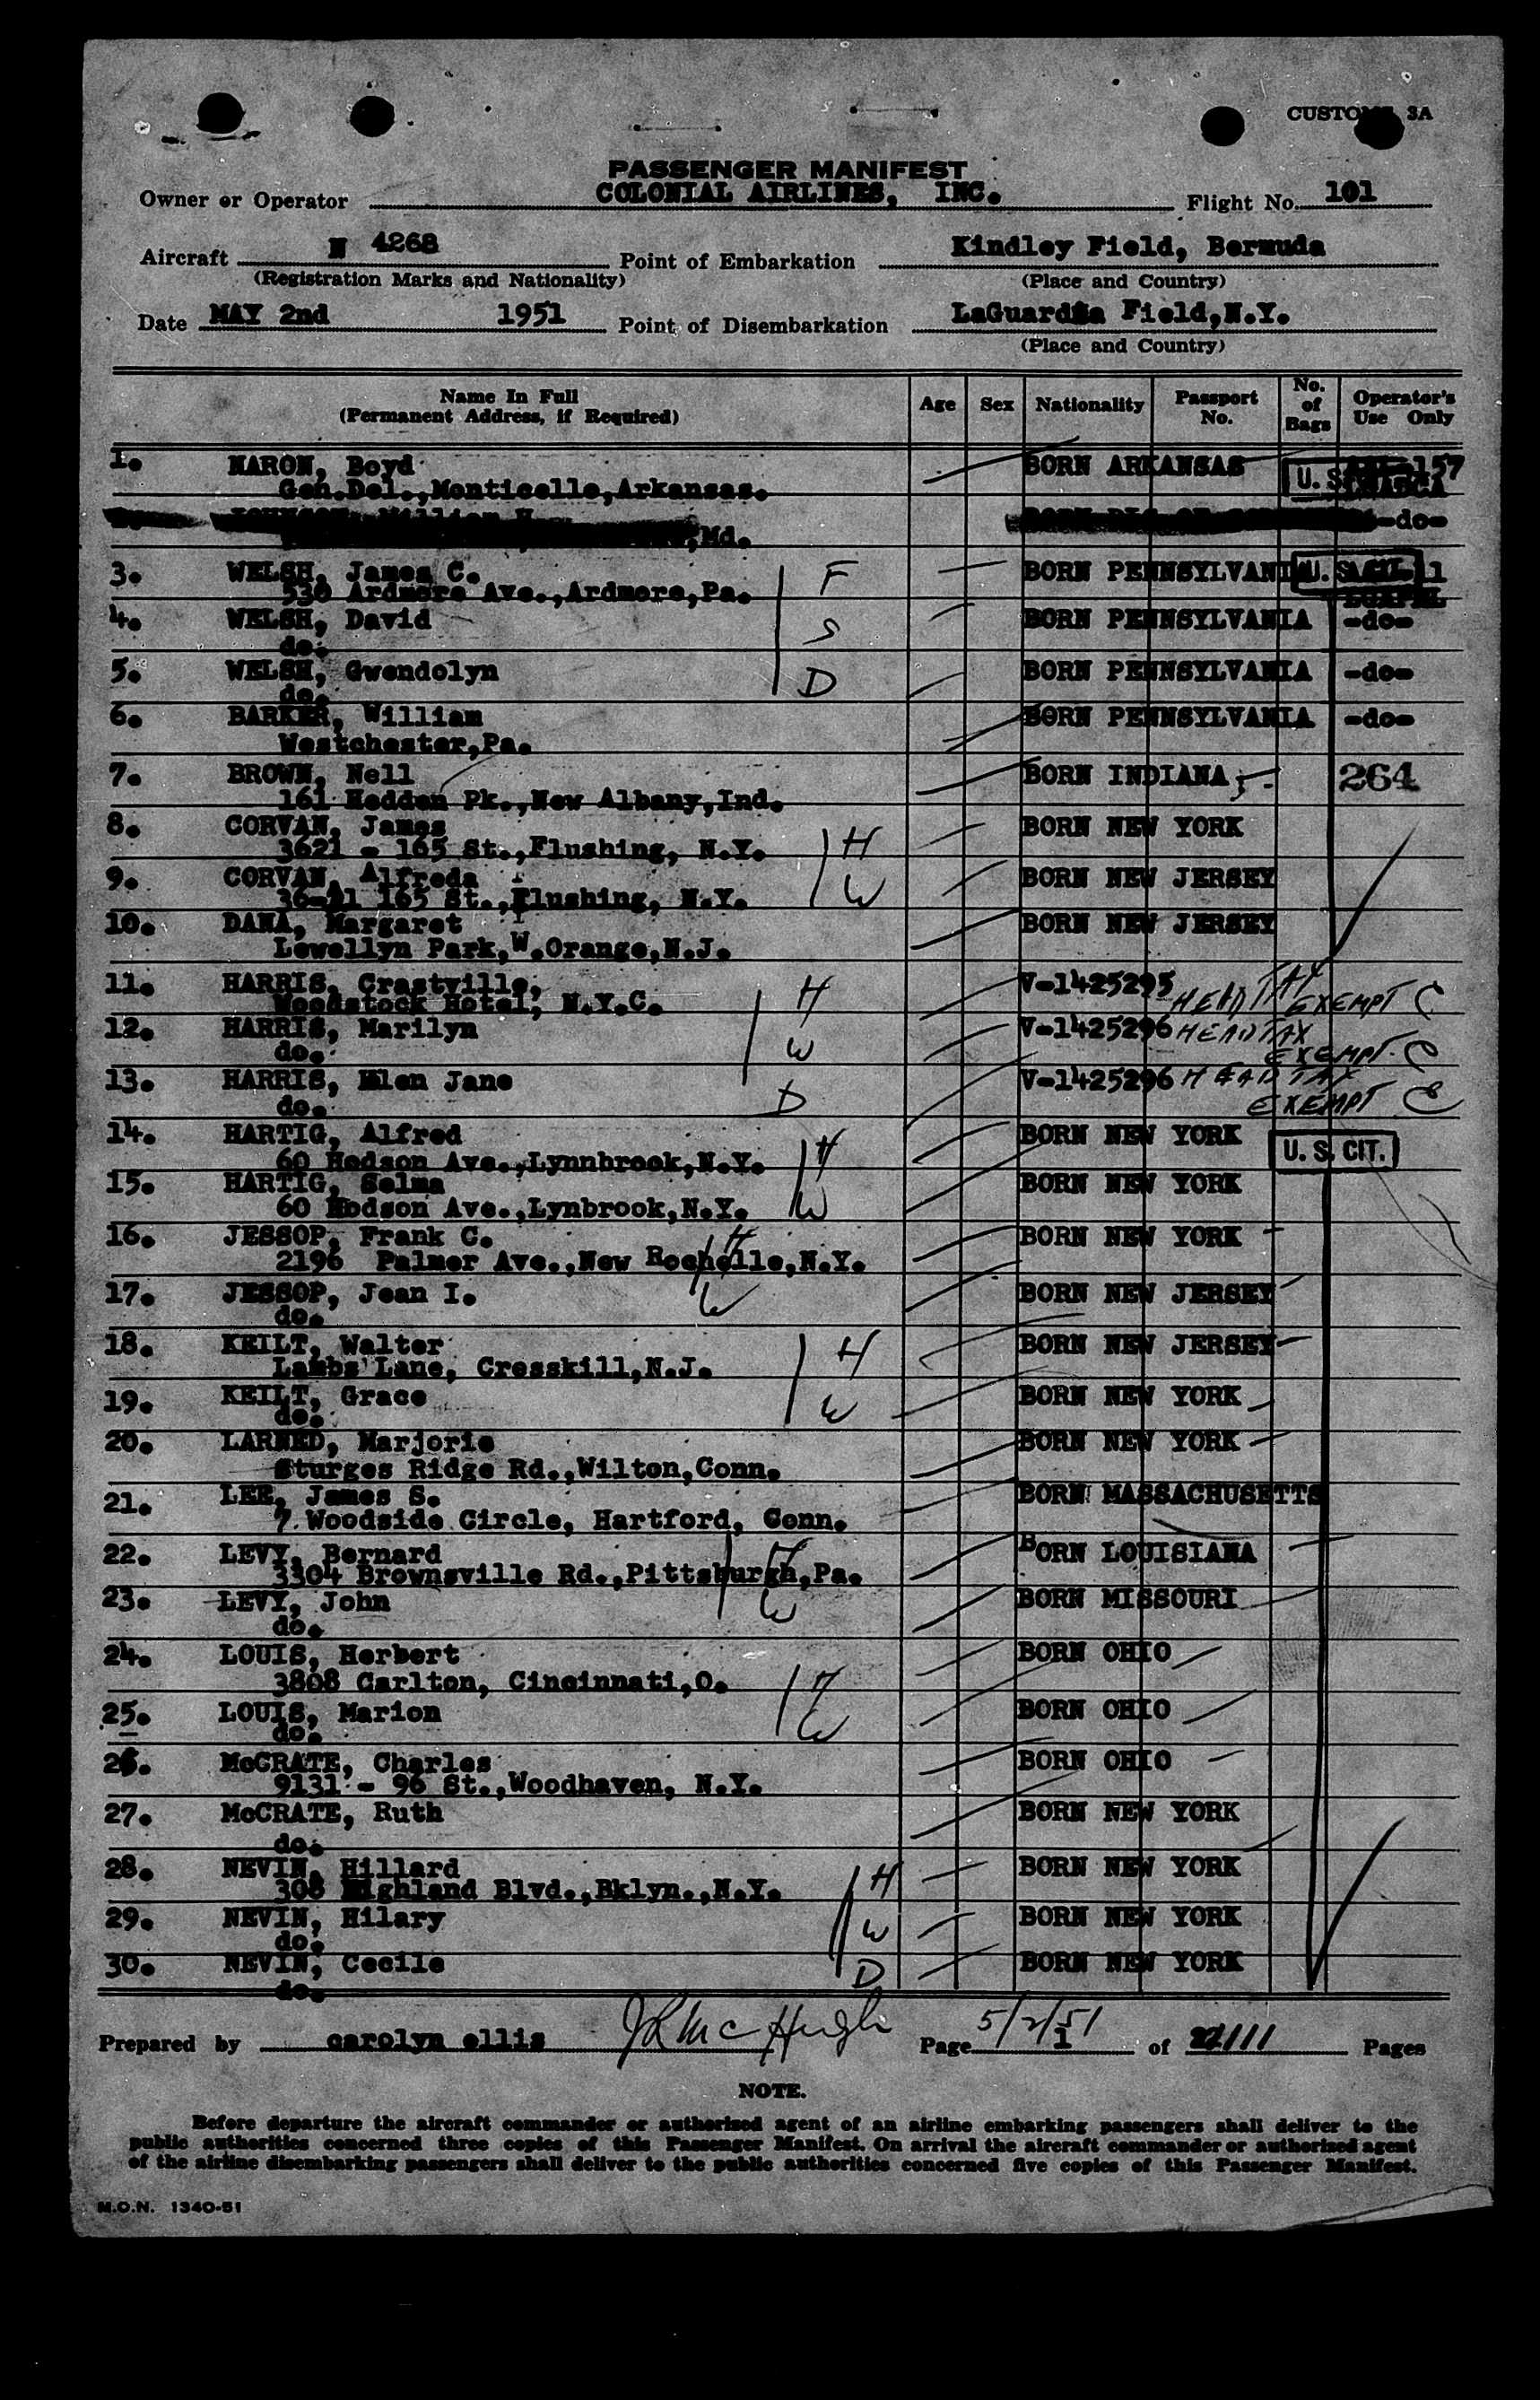 CUSTOMS 3A
PASSENGER MANIFEST
Owner or Operator COLONIAL AIRLINES, INC. Flight No. 101
Aircraft N 4268 Point of Embarkation Kindley Field, Bermuda
(Registration Marks and Nationality) (Place and Country)
Date MAY 2nd 1951 Point of Disembarkation LaGuardia Field,N.Y.
(Place and Country)
Name In Full (Permanent Address, if Required) Age Sex Nationality Passport No. No. of Bags Operator's Use Only
1. NARON, Boyd BORN ARKANSAS U. S. 157
Gen.Del.,Monticello,Arkansas.
-do-
,Md.
3. WELSH, James C. F BORN PENNSYLVANIA U. S. CIT. 1
530 Ardmore Ave.,Ardmore,Pa.
4. WELSH, David S BORN PENNSYLVANIA -do-
do.
5. WELSH, Gwendolyn D BORN PENNSYLVANIA -do-
do.
6. BARKER, William BORN PENNSYLVANIA -do-
Westchester,Pa.
7. BROWN, Nell BORN INDIANA 264
161 Hedden Pk.,New Albany,Ind.
8. CORVAN, James H BORN NEW YORK
3621 - 165 St.,Flushing, N.Y.
9. CORVAN, Alfreda W BORN NEW JERSEY
36-21 165 St.,Flushing, N.Y.
10. DANA, Margaret BORN NEW JERSEY
Lewellyn Park,W.Orange,N.J.
11. HARRIS, Crastville, H V-1425295 HEAD TAX EXEMPT C
Woodstock Hotel, N.Y.C.
12. HARRIS, Marilyn W V-1425296 HEAD TAX EXEMPT. C
do.
13. HARRIS, Elen Jane D V-1425296 HEAD TAX EXEMPT C
do.
14. HARTIG, Alfred H BORN NEW YORK U. S. CIT.
60 Hodson Ave.,Lynnbrook,N.Y.
15. HARTIG, Selma W BORN NEW YORK
60 Hodson Ave.,Lynbrook,N.Y.
16. JESSOP, Frank C. H BORN NEW YORK
2196 Palmer Ave.,New Rochelle,N.Y.
17. JESSOP, Jean I. W BORN NEW JERSEY
do.
18. KEILT, Walter H BORN NEW JERSEY
Lambs Lane, Cresskill,N.J.
19. KEILT, Grace W BORN NEW YORK
do.
20. LARNED, Marjorie BORN NEW YORK
Sturges Ridge Rd.,Wilton,Conn.
21. LEE, James S. BORN MASSACHUSETTS
7 Woodside Circle, Hartford, Conn.
22. LEVY, Bernard H BORN LOUISIANA
3304 Brownsville Rd.,Pittsburgh,Pa.
23. LEVY, John W BORN MISSOURI
do.
24. LOUIS, Herbert H BORN OHIO
3808 Carlton, Cincinnati,O.
25. LOUIS, Marion W BORN OHIO
do.
26. McCRATE, Charles BORN OHIO
9131 - 96 St.,Woodhaven, N.Y.
27. McCRATE, Ruth BORN NEW YORK
do.
28. NEVIN, Hillard H BORN NEW YORK
308 Highland Blvd.,Bklyn.,N.Y.
29. NEVIN, Hilary W BORN NEW YORK
do.
30. NEVIN, Cecile D BORN NEW YORK
do.
Prepared by carolyn ellis JR McHugh Page 5/2/51 1 of Pages
NOTE.
Before departure the aircraft commander or authorized agent of an airline embarking passengers shall deliver to the
public authorities concerned three copies of this Passenger Manifest. On arrival the aircraft commander or authorized agent
of the airline disembarking passengers shall deliver to the public authorities concerned five copies of this Passenger Manifest.
M.O.N. 1340-51